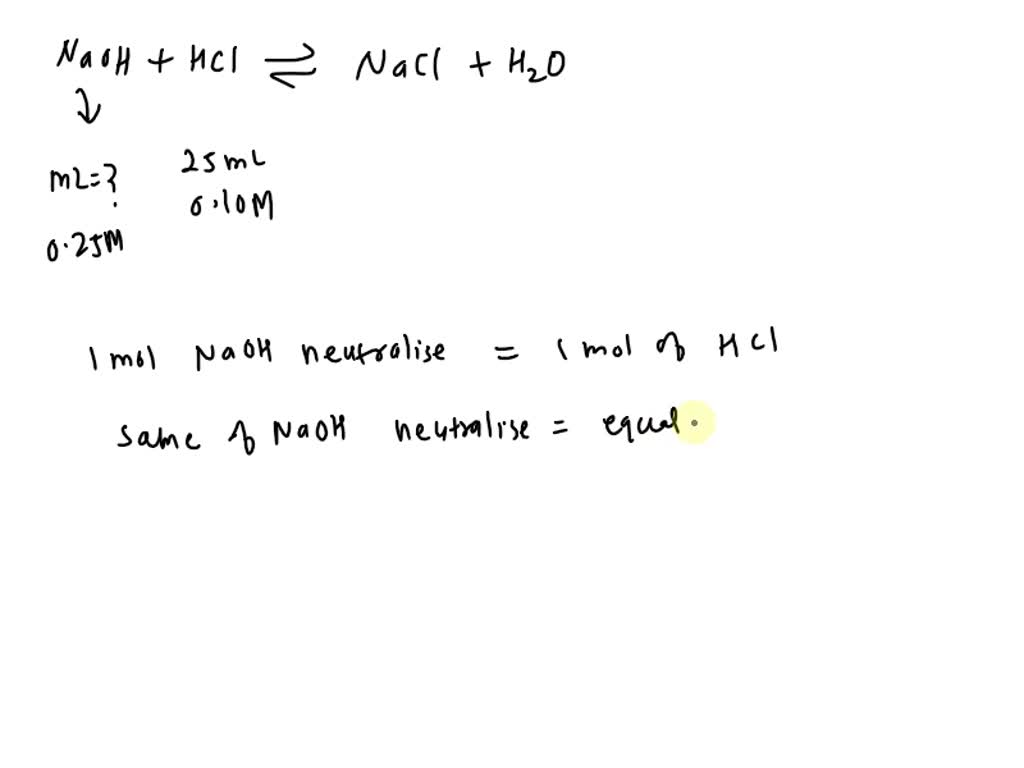 NaOH + HCl ⇌ NaCl + H₂O
↓
mL=? 25mL
0.10M
0.25M
1 mol NaOH neutralise = 1 mol of HCl
same of NaOH neutralise = equal